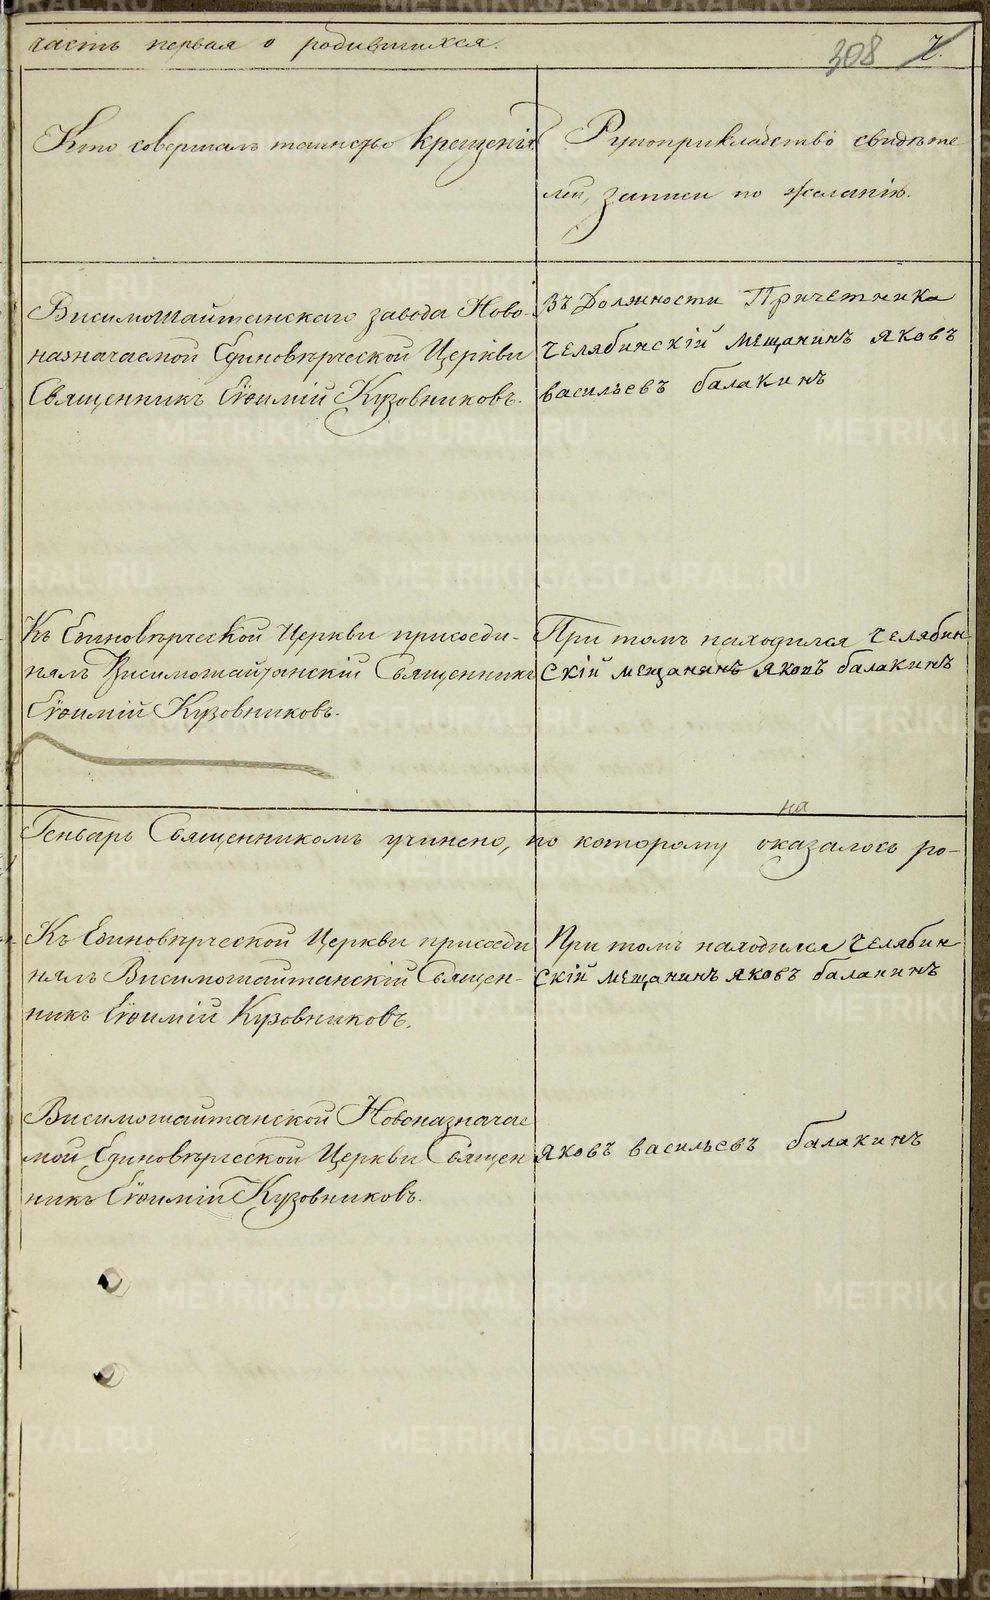 часть первая о родившихся.
308 2.
Кто совершалъ таинство крещенія
Рукоприкладство свидѣте
лей, записи по желанію.
Висимошайтанскаго завода Ново-
назначаемой Единовѣрческой Церкви
Священникъ Евѳимій Кузовниковъ.
Въ Должности Причетника
Челябинскій мещанинъ яковъ
васильевъ балакинъ
Къ Единовѣрческой Церкви присоеди-
нялъ Висимошайтанскій Священникъ
Евѳимій Кузовниковъ.
При томъ находился челябин
скій мещанинъ яковъ балакинъ
на
Генварь Священникомъ учинено, по которому оказалось ро-
Къ Единовѣрческой Церкви присоеди
нялъ Висимошайтанскій Священ-
никъ Евѳимій Кузовниковъ.
При томъ находился челябин
скій мещанинъ яковъ балакинъ
Висимошайтанской Новоназначае
мой Единовѣрческой Церкви Священ
никъ Евѳимій Кузовниковъ.
яковъ васильевъ балакинъ
METRIKI.GASO-URAL.RU